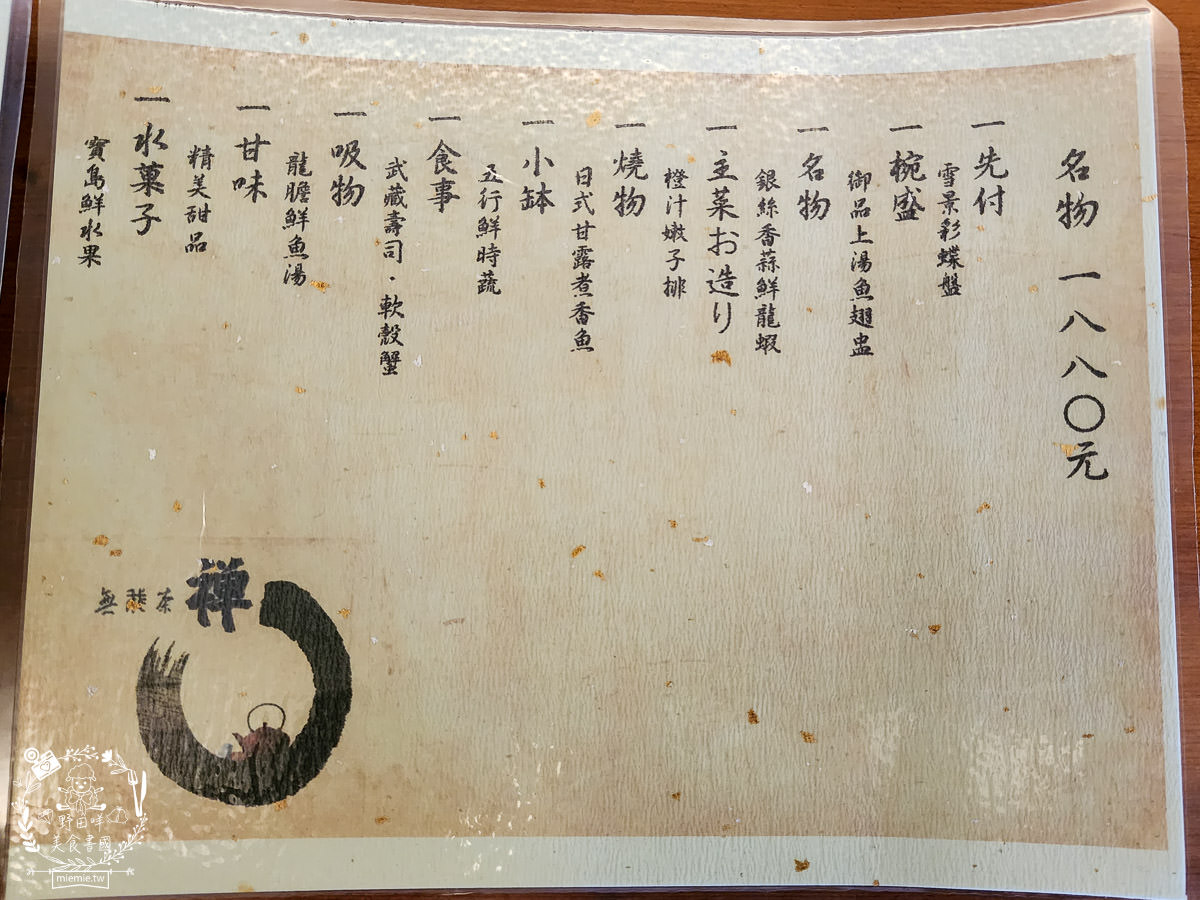 名物 一八八〇元
一先付
雪景彩蝶盤
一椀盛
御品上湯魚翅盅
一名物
銀絲香蒜鮮龍蝦
一主菜お造り
橙汁嫩子排
一燒物
日式甘露煮香魚
一小缽
五行鮮時蔬
一食事
武藏壽司・軟殼蟹
一吸物
龍膽鮮魚湯
一甘味
精美甜品
一水菓子
寶島鮮水果
禪
野田咩
美食書國
miemie.tw